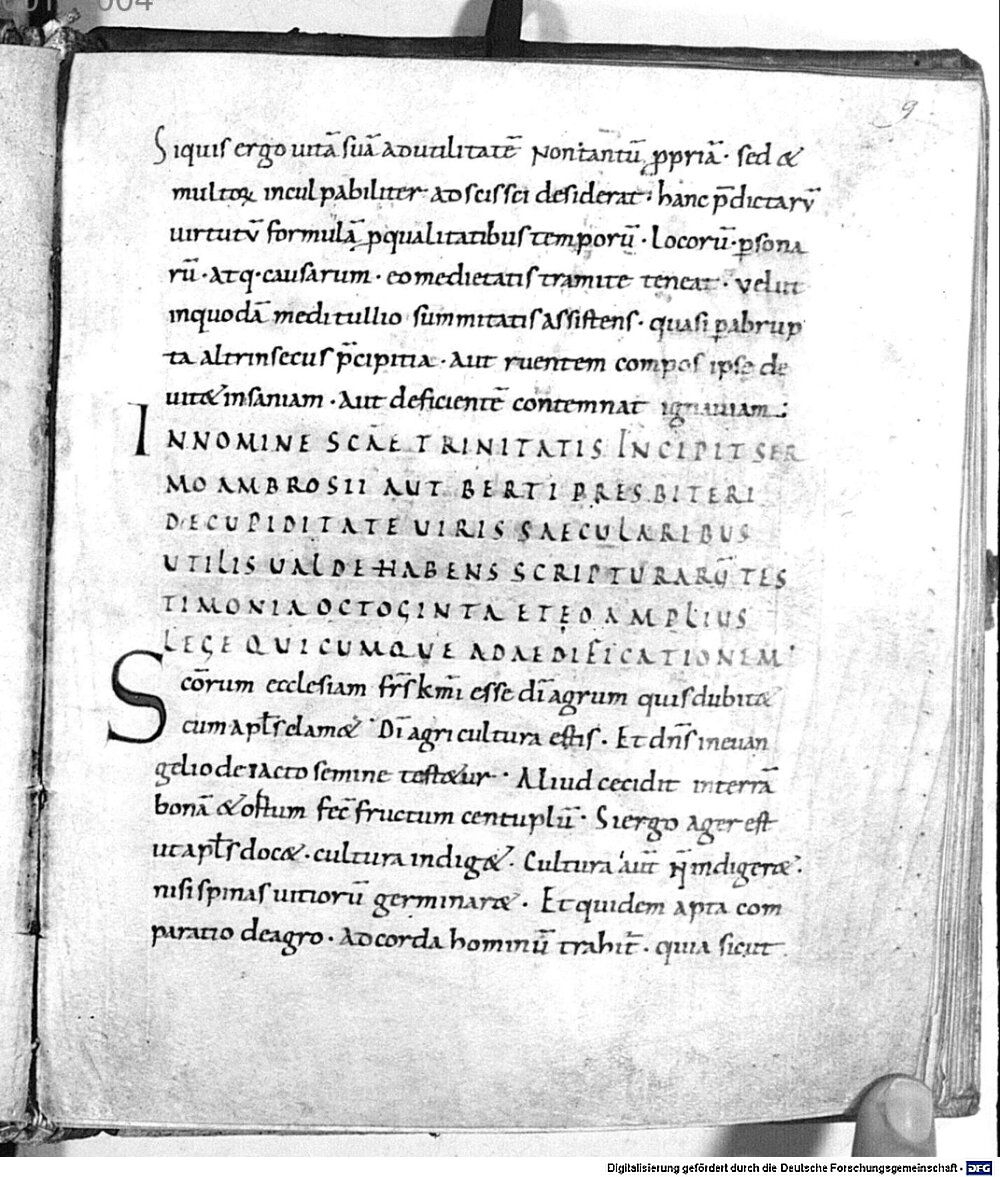 9
Siquis ergo uitā suā adutilitatē nontantū ꝓpriā · sed &
multoꝝ inculpabiliter adscissci desiderat · hanc p̄dictarū
uirtutū formulā ꝑqualitatibus temporū · locorū · ꝑsona
rū · atq · causarum · eo medietatis tramite teneat · velut
inquodā meditullio summitatis assistens · quasi ꝑabrup
ta altrinsecus p̄cipitia · Aut ruentem compos ipse de
uit& insaniam · Aut deficientē contemnat ignauiam :
INNOMINE SCAE TRINITATIS INCIPIT SER
MO AMBROSII AUTBERTI PRESBITERI
DECUPIDITATE UIRIS SAECULARIBUS
UTILIS UALDE HABENS SCRIPTURARŪ TES
TIMONIA OCTOGINTA ET EO AMPLIUS
LEGE QUICUMQUE ADAEDIFICATIONEM
Scōrum ecclesiam fr̄s km̄i esse dī agrum quis dubit&
cum apłs clam& · Dī agricultura estis · Et dn̄s ineuan
gelio de iacto semine test&ur · Aliud cecidit interrā
bonā & ortum fec̄ fructum centuplū · Si ergo ager est
ut apłs doc& · cultura indig& · Cultura aut̄ ñ indiger& ·
nisi spinas uitiorū germinar& · Et quidem apta com
paratio de agro · Ad corda hominū trahit · quia sicut
Digitalisierung gefördert durch die Deutsche Forschungsgemeinschaft - DFG